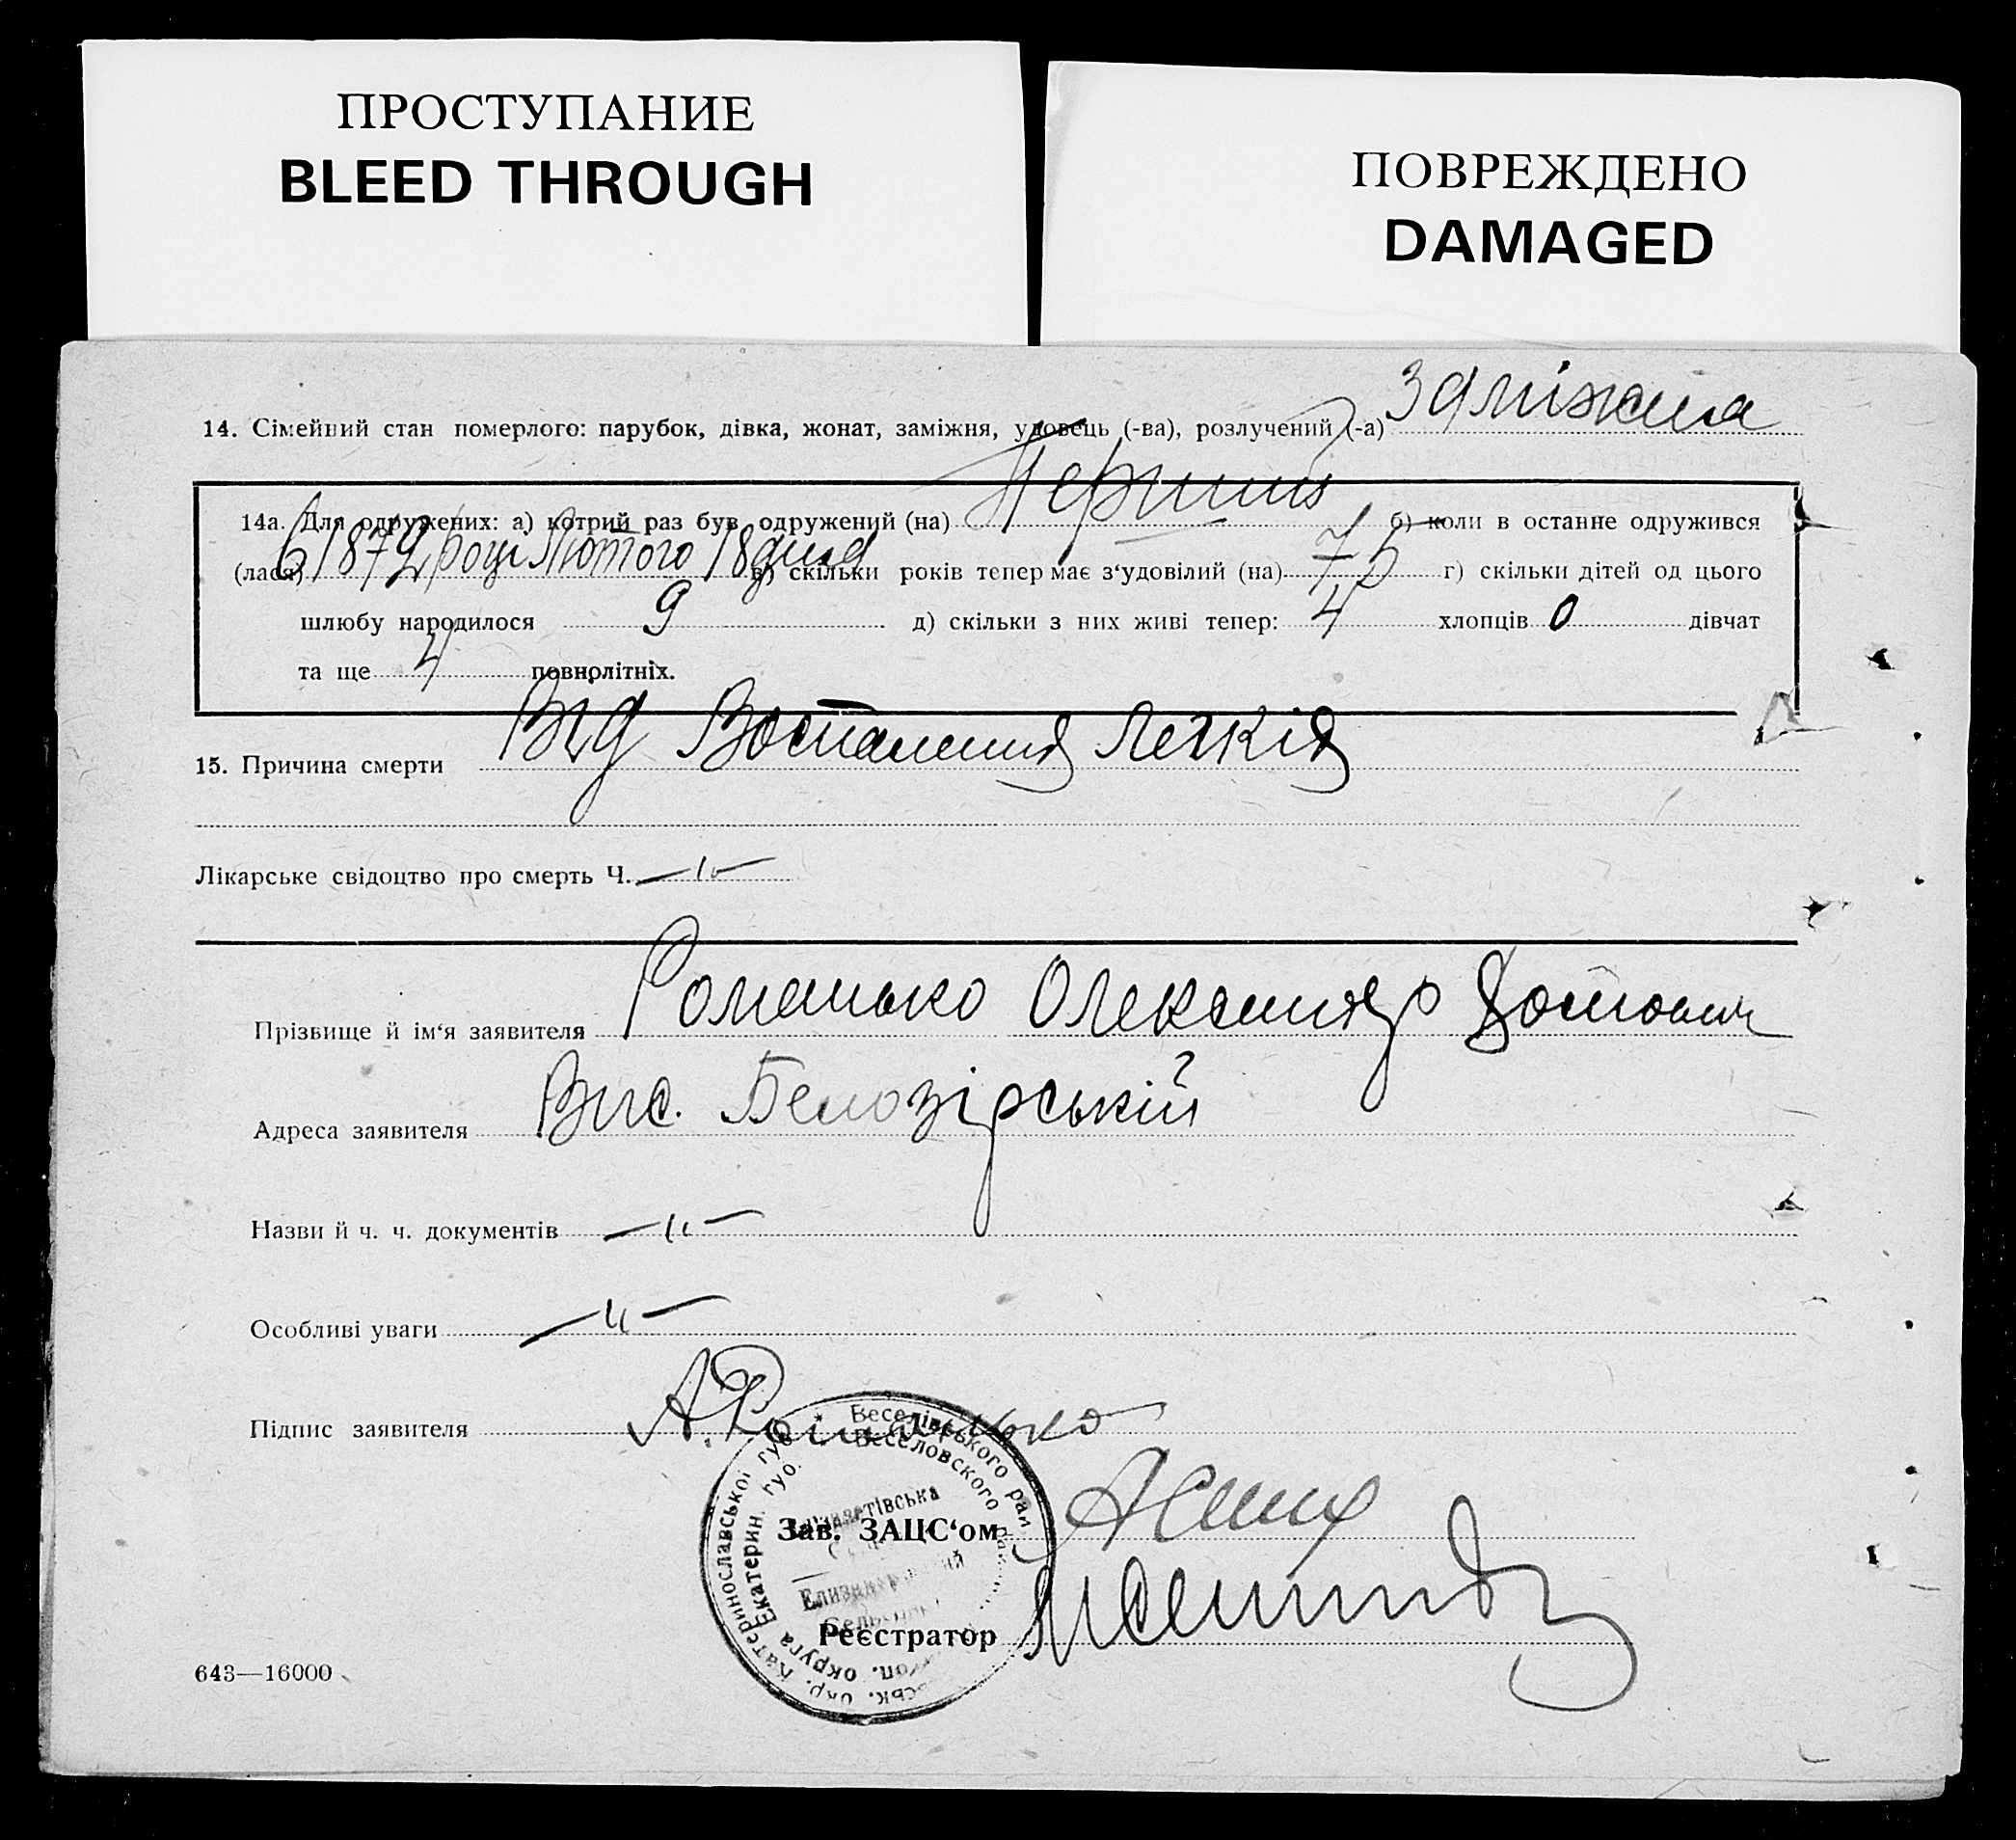 ПРОСТУПАНИЕ
BLEED THROUGH
ПОВРЕЖДЕНО
DAMAGED
14. Сімейний стан померлого: парубок, дівка, жонат, заміжня, удовець (-ва), розлучений (-а) Заміжна
14а. Для одружених: а) котрий раз був одружений (на) Перший б) коли в останнє одружився
(лася) в 1872 році Лютого 18 дня в) скільки років тепер має з‘удовілий (на) 75 г) скільки дітей од цього
шлюбу народилося 9 д) скільки з них живі тепер: 4 хлопців 0 дівчат
та ще 4 повнолітніх.
15. Причина смерти Від Воспаления Легкія
Лікарське свідоцтво про смерть Ч. —„—
Прізвище й ім‘я заявителя Романько Олександр
Адреса заявителя Вис. Белозірський
Назви й ч. ч. документів —„—
Особливі уваги —„—
Підпис заявителя А. Романько
Зав. ЗАЦС‘ом
Реєстратор
643—16000
Веселівського рай
Веселовского
окр. Катеринославської губ.
округа Екатерин. губ.